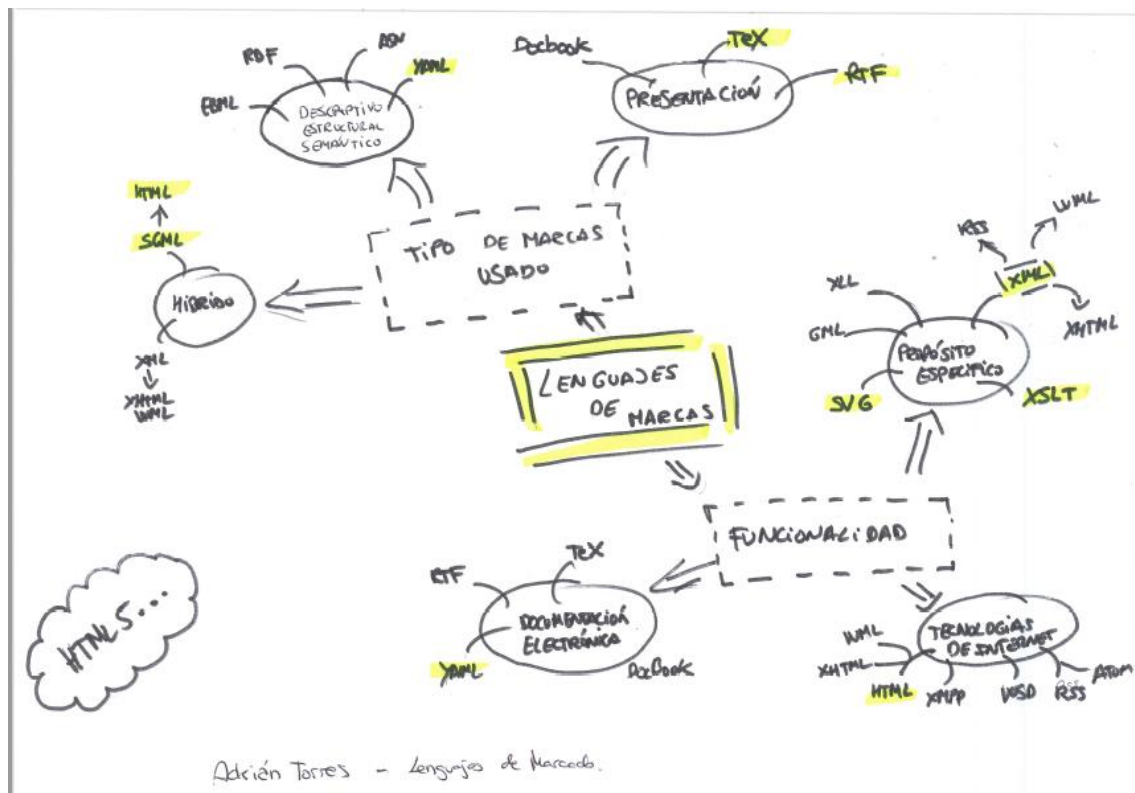 RDF
ADN
YAML
EBML
DESCRIPTIVO
ESTRUCTURAL
SEMÁNTICO
Docbook
TeX
RTF
PRESENTACIÓN
HTML
SGML
HíBRIDO
XML
XHTML
WML
TiPO DE MARCAS
USADO
LENGUAJES
DE MARCAS
RSS
WML
XML
XHTML
XLL
GML
PROPÓSITO
ESPECÍFICO
SVG
XSLT
FUNCiONALiDAD
RTF
TeX
DOCUMENTACIÓN
ELECTRÓNICA
YAML
DocBook
TECNOLOGíAS
DE INTERNET
WML
XHTML
HTML
XMPP
RSS
ATOM
HTML5...
Adrián Torres - Lenguajes de Marcado.